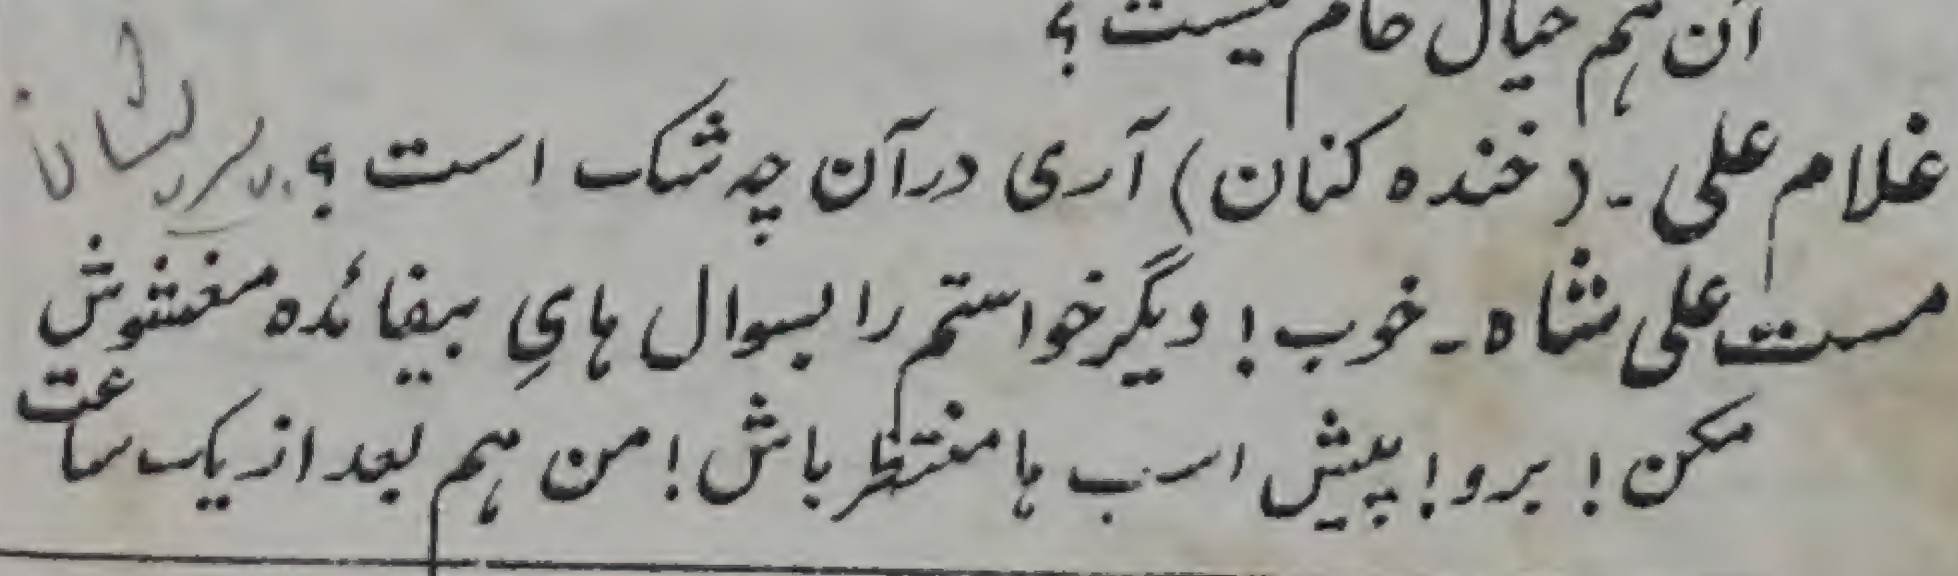 آن ہم خیال خام نیست؟
غلام علی ۔ (خنده کنان) آری درآن چہ شک است؟ پریشان
مست علی شاه ۔ خوب! دیگر خواستم را بسوال ہایِ بیفائده مغشوش
مکن! برو! پیش اسب ہا منتظر باش! من ہم بعد از یک ساعت